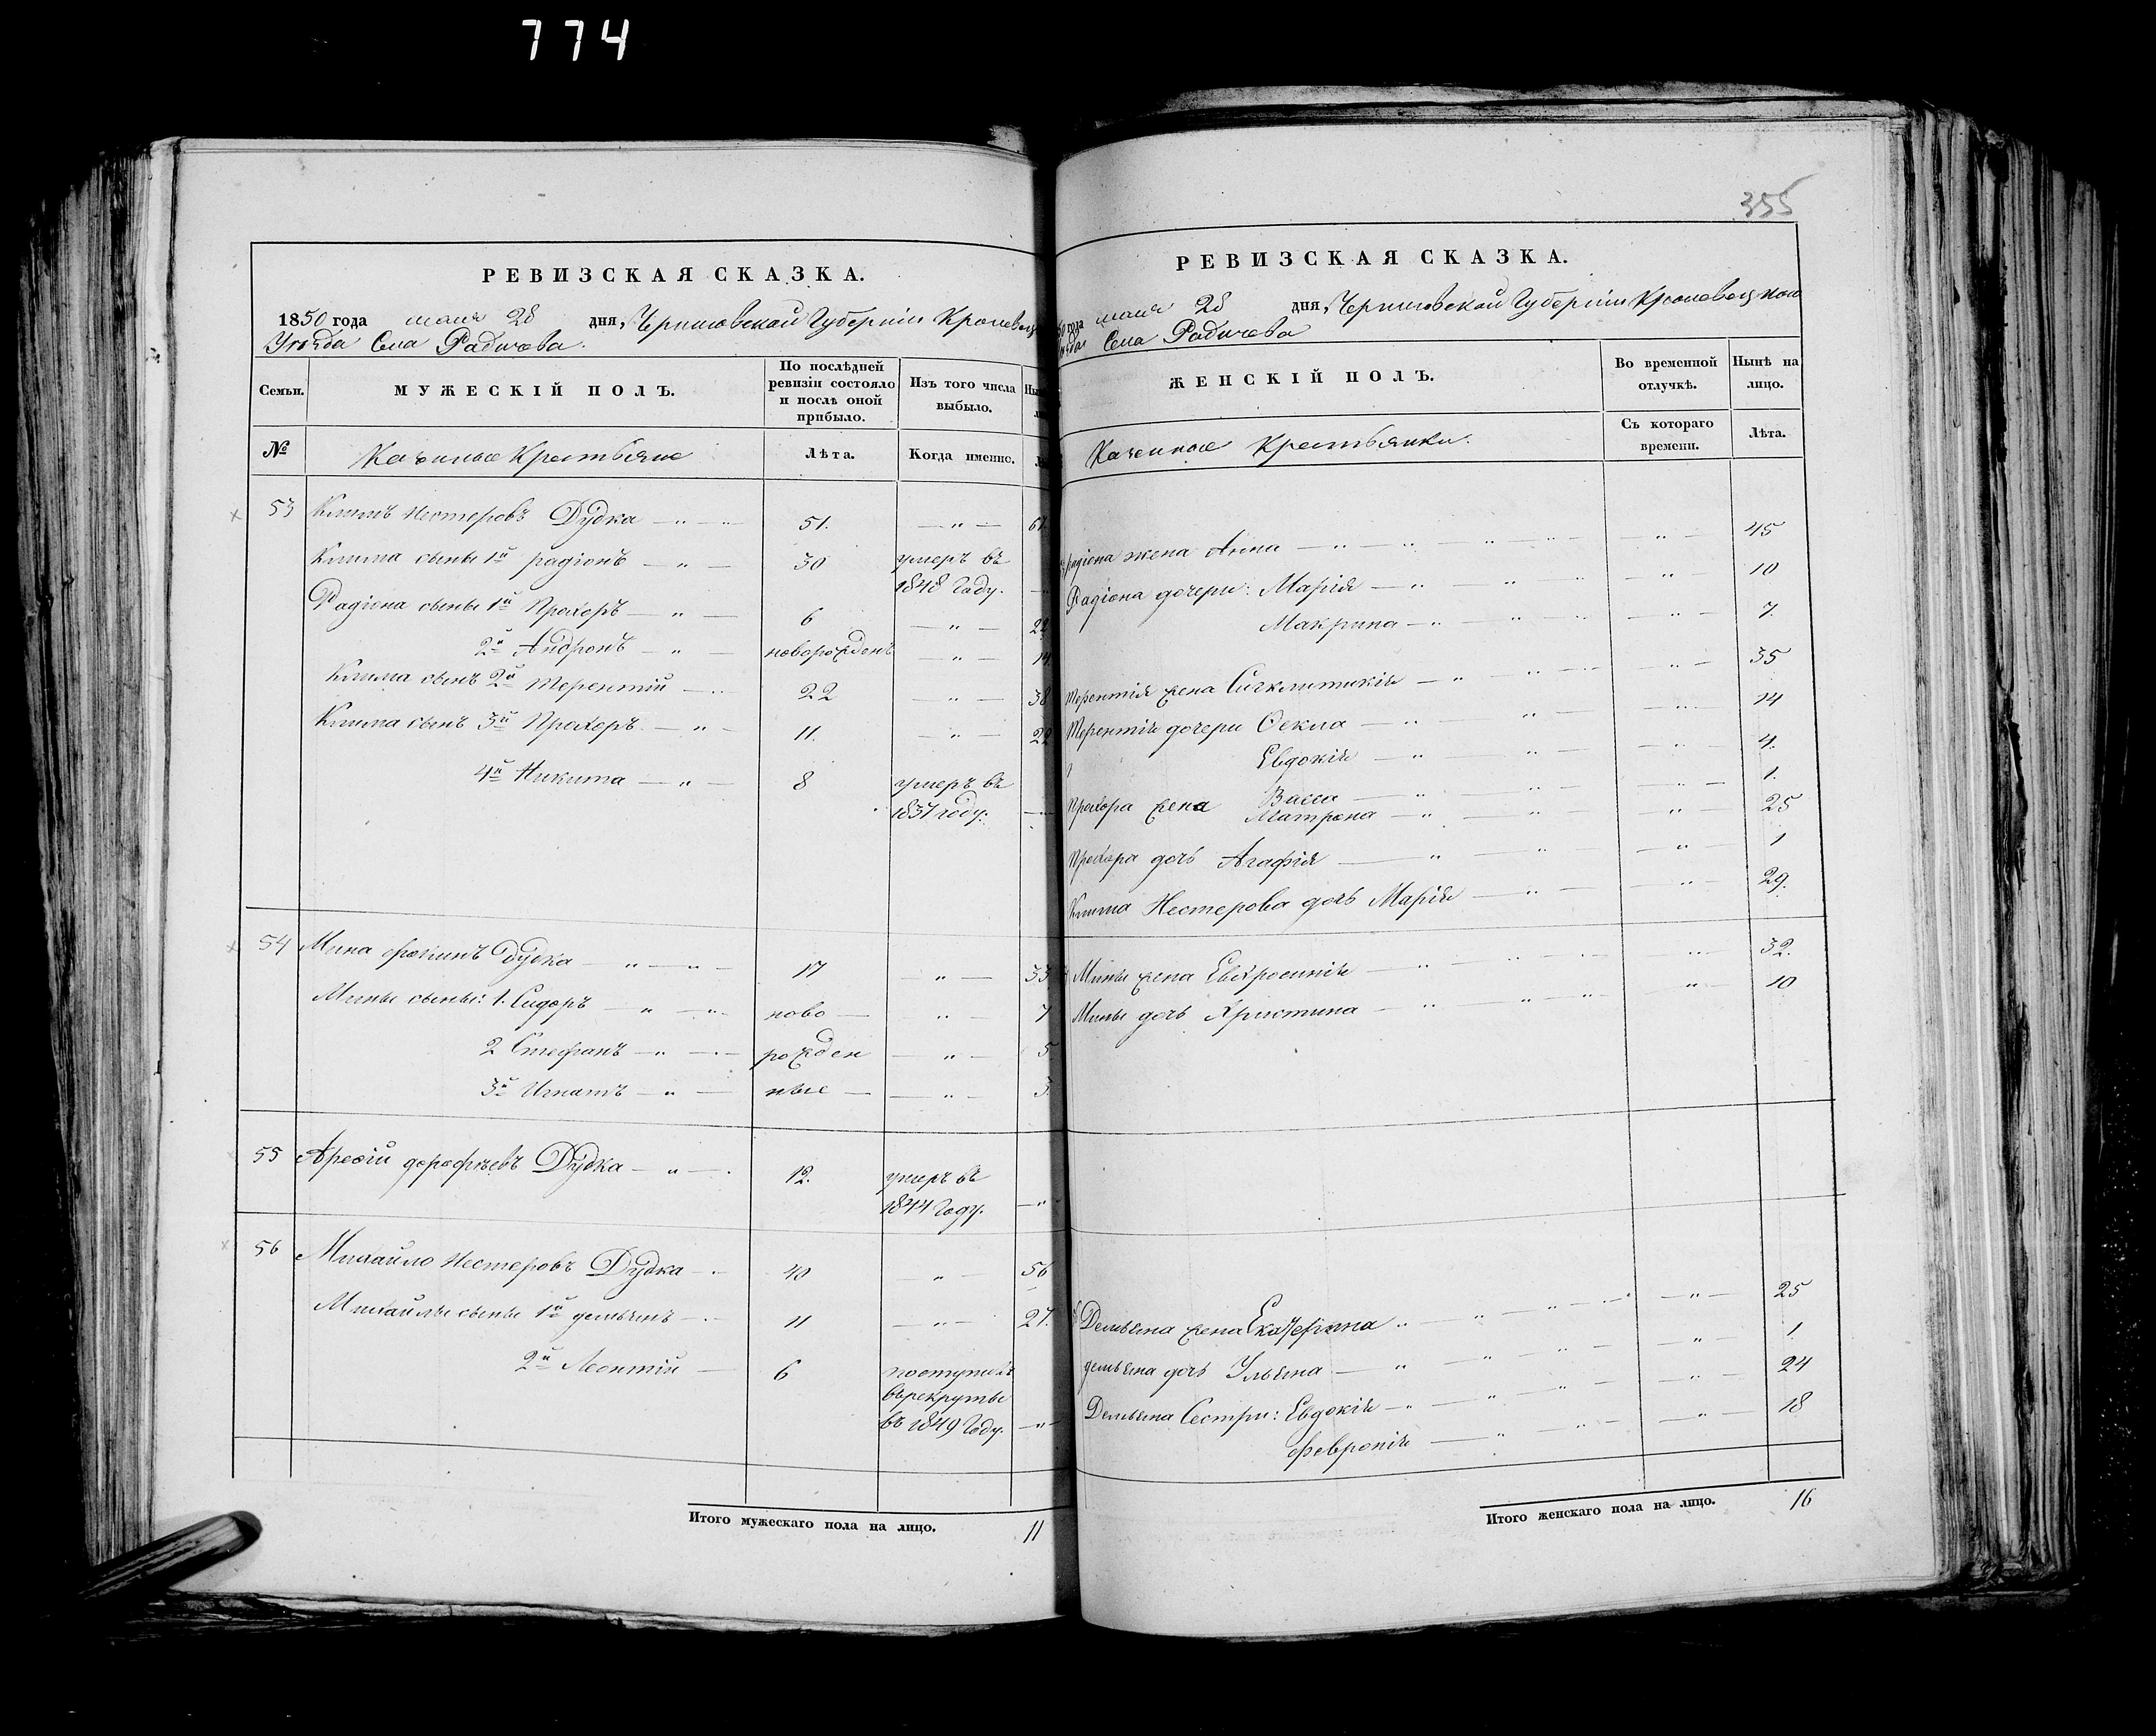 774
355
РЕВИЗСКАЯ СКАЗКА.
1850 года маия 28 дня, Черниговской Губернии Кролевец
Уѣзда Села Радичева.
Семьи.
МУЖЕСКІЙ ПОЛЪ.
По послѣдней
ревизіи состояло
и послѣ оной
прибыло.
Изъ того числа
выбыло.
№
Казенные Крестьяне
Лѣта.
Когда именно.
53 Климъ Нестеровъ Дудка — " — " 51. — " — 67.
Клима сыны 1й радіонъ — " — 30 умеръ въ
1848 Году. — "
Радіона сыны 1й Прохоръ — " — 6 — " — 22
2й Андронъ — " — новорожденъ — " — 14.
Клима сынъ 2й Терентій — " 22 — " — 38
Клима сынъ 3й Прохоръ — " — 11. — " — 22
4й Никита — " — 8 умеръ въ
1837 году: —
54 Мина фокинъ Дудка — " — " — 17 " — 33
Мины сыны: 1. Сидоръ — " — " — ново — " — 7
2 Стефанъ — " — рожден — " — 5
3й Игнатъ — " — ные — — " — 3.
55 Арефій дорофѣевъ Дудка — " — . 12. умеръ въ
1844 Году. — "
56 Михайло Нестеровъ Дудка — . — 40 " — 56
Михайлы сыны 1й демьянъ — . 11 — " — 27.
2й Леонтій — 6 поступилъ
въ рекруты
въ 1849 Году. — "
Итого мужескаго пола на лицо. 11
РЕВИЗСКАЯ СКАЗКА.
маия 28 дня, Черниговской Губерніи Кролевецкого
Села Радичева
ЖЕНСКІЙ ПОЛЪ.
Во временной
отлучкѣ.
Нынѣ на
лицо.
Казенные Крестьянки.
Съ котораго
времени.
Лѣта.
радіона жена Анна — " — " — " — " — — " — 45
Радіона дочери: Марія — " — " — " — " — 10
Макрина — " — " — " — " — 7.
Терентія жена Сигклитикія — " — " — " — 35
Терентія дочери Фекла — " — " — — " — 14
Евдокія — " — " — — " — 4.
Васса — " — " — — " — 1.
Прохора жена Матрона — " — " — " — 25
Прохора дочь Агафія — " — " — — " — 1
Клима Нестерова дочь Марія — " — — " — 29.
Мины жена Евфросинія — " — " — " — — " — 32.
Мины дочь Христина — " — " — " — " — 10
Демьяна жена Екатерина " — " — " — " — — " — 25
демьяна дочь Ульяна — " — " — " — " 1.
Демьяна Сестри: Евдокія — " — " — " — " — 24
февронія — " — " — — " — 18
Итого женскаго пола на лицо. 16